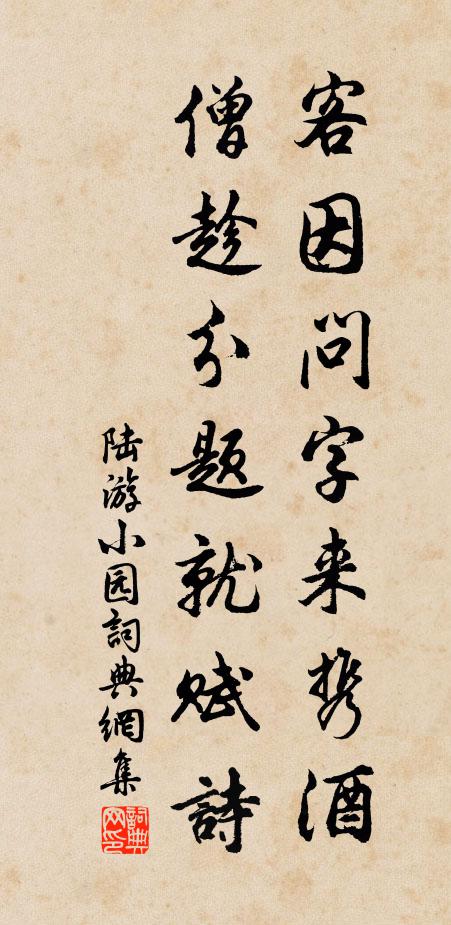 客因問字来携酒
僧趁分题就赋詩
陆游小园詞典網集
詞典网印